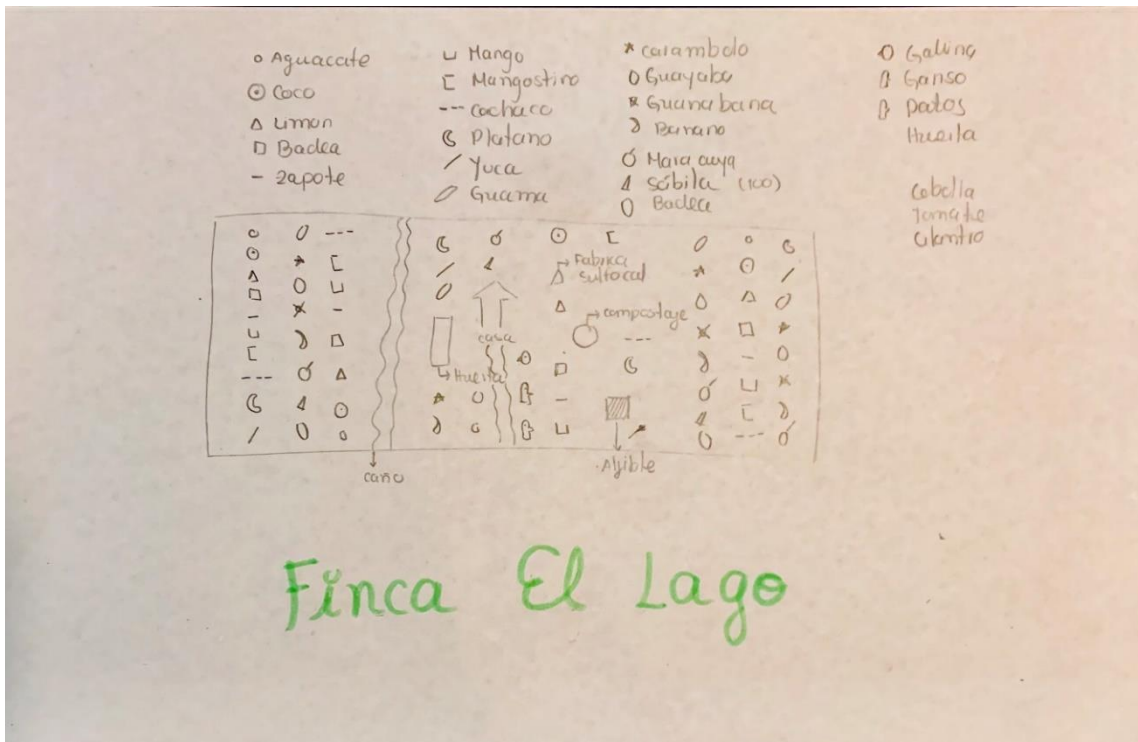 Aguacate
Coco
Limon
Badea
Zapote
Mango
Mangostino
Cachaco
Platano
Yuca
Guama
Carambolo
Guayaba
Guanabana
Banano
Maracuya
Sábila (100)
Badea
Gallina
Ganso
Patos
Huerta
Cebolla
Tomate
Cilantro
Fabrica
Sulfocal
compostaje
casa
Huerta
Aljible
caño
Finca El Lago